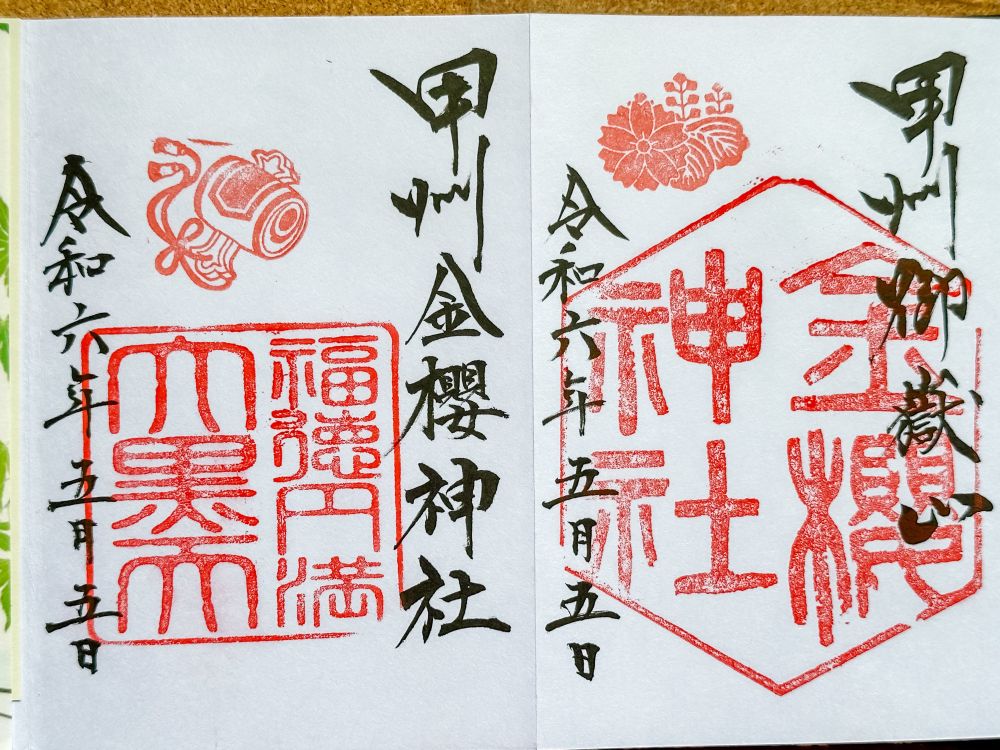 甲州御嶽山
金櫻
神社
令和六年五月五日
甲州金櫻神社
福徳円満
大黒天
令和六年五月五日